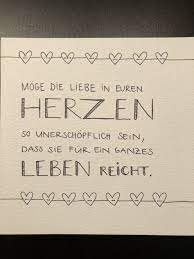 MÖGE DIE LIEBE IN EUREN
HERZEN
SO UNERSCHÖPFLICH SEIN,
DASS SIE FÜR EIN GANZES
LEBEN REICHT.